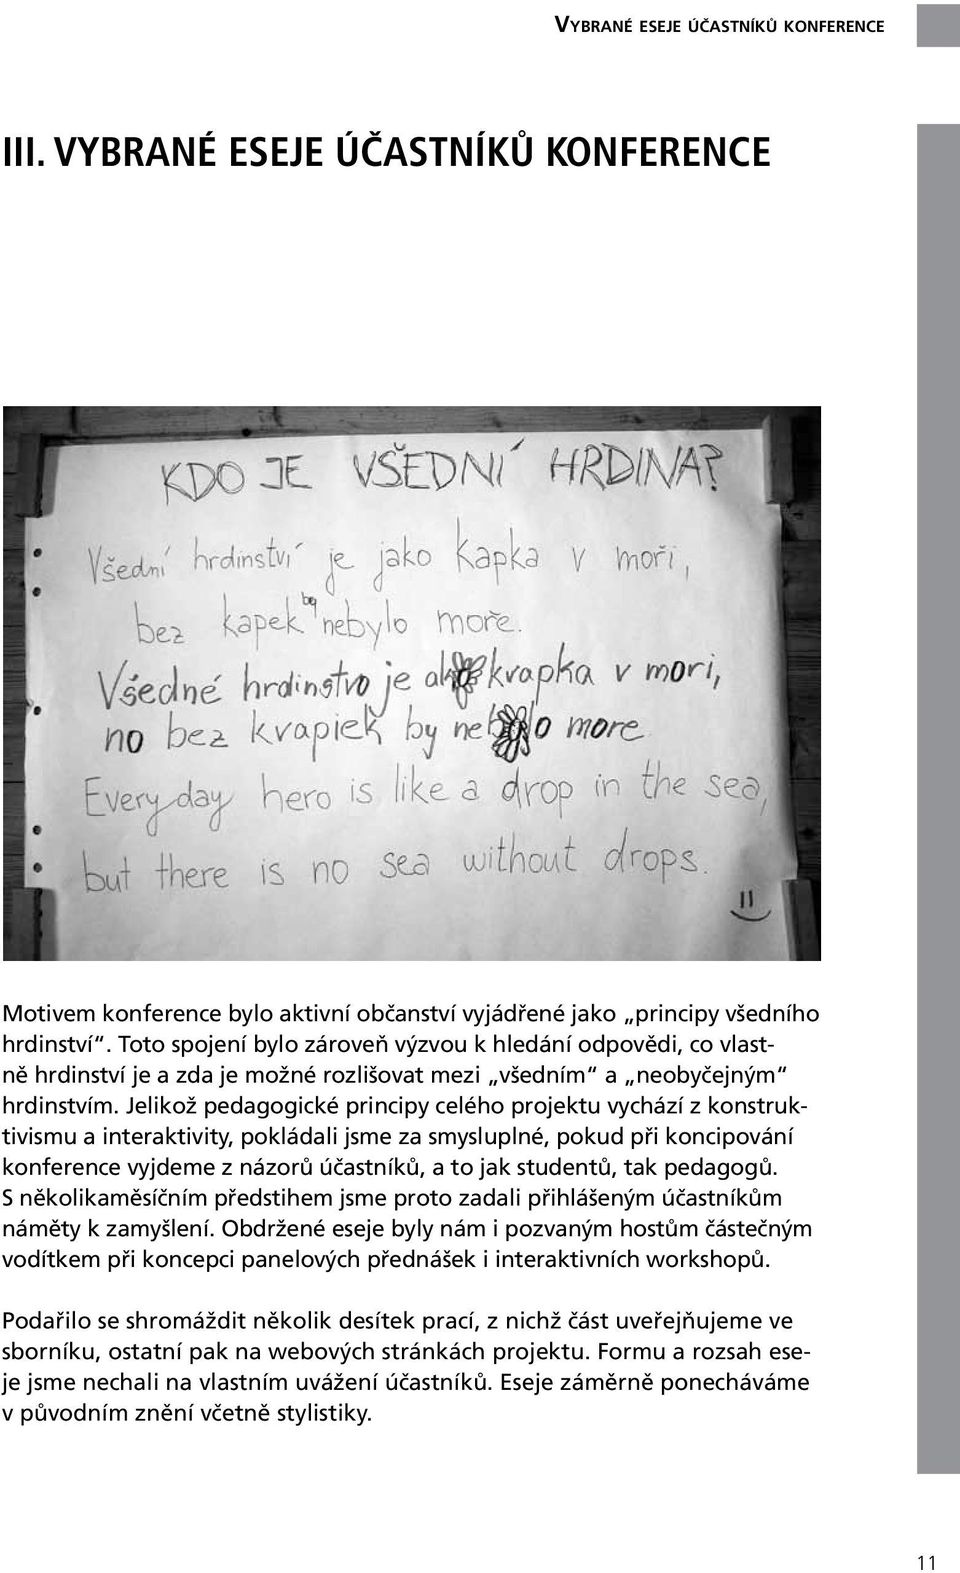 Vybrané eseje účastníků konference
III. VYBRANÉ ESEJE ÚČASTNÍKŮ KONFERENCE
KDO JE VŠEDNÍ HRDINA?
Všední hrdinství je jako kapka v moři,
bez kapek by nebylo moře.
Všedné hrdinstvo je ako kvapka v mori,
no bez kvapiek by nebolo more.
Everyday hero is like a drop in the sea,
but there is no sea without drops.
Motivem konference bylo aktivní občanství vyjádřené jako „principy všedního
hrdinství“. Toto spojení bylo zároveň výzvou k hledání odpovědi, co vlast-
ně hrdinství je a zda je možné rozlišovat mezi „všedním“ a „neobyčejným“
hrdinstvím. Jelikož pedagogické principy celého projektu vychází z konstruk-
tivismu a interaktivity, pokládali jsme za smysluplné, pokud při koncipování
konference vyjdeme z názorů účastníků, a to jak studentů, tak pedagogů.
S několikaměsíčním předstihem jsme proto zadali přihlášeným účastníkům
náměty k zamyšlení. Obdržené eseje byly nám i pozvaným hostům částečným
vodítkem při koncepci panelových přednášek i interaktivních workshopů.
Podařilo se shromáždit několik desítek prací, z nichž část uveřejňujeme ve
sborníku, ostatní pak na webových stránkách projektu. Formu a rozsah ese-
je jsme nechali na vlastním uvážení účastníků. Eseje záměrně ponecháváme
v původním znění včetně stylistiky.
11